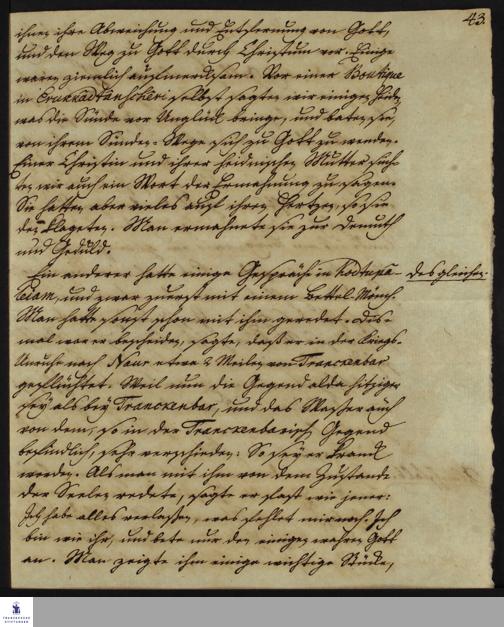 43.
ihnen ihre Abweichung und Entfernung von Gott,
und den Weg zu Gott durch Christum vor. Einige
waren ziemlich aufmercksam. Vor einer Boutique
in selbst sagten wir einigen
was die Sünde vor Unglück bringe, und baten sie,
von ihrem Sünden-Wege sich zu Gott zu wenden.
Einer Christin und ihrer heidnischen Mutter such-
ten wir auch ein Wort der Ermahnung zu sagen.
Sie hatten aber vieles auf ihren Hertzen, so sie
klageten. Man ermahnete sie zur Demuth
und Geduld.
Ein anderer hatte einige Gespräche in
desgleichen.
und zwar zuerst mit einem Bettel-Mönch.
Man hatte sonst schon mit ihm geredet. Dis-
mal war er bescheiden, sagte, daß er in der Kriegs-
Unruhe nach Naur etwa 2 Meilen von Tranckenbar
geflüchtet. Weil nun die Gegend alda hitziger
sey als bey Tranckenbar, und das Waßer auch
von dem, so in der Tranckenbarisch Gegend
befindlich, sehr verschieden: So sey er kranck
worden. Als man mit ihm von dem Zustande
der Seelen redete, sagte er fast wie jener:
Ich habe alles verlaßen, was fehlet mir noch. Ich
bin wie ihr, und bete nur den einigen wahren Gott
an. Man zeigte ihm einige wichtige Stücke,
FRANCKESCHE
STIFTUNGEN